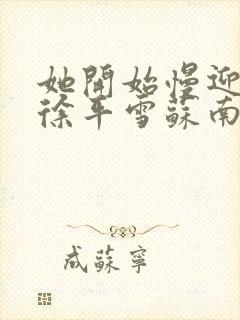 她開始慢迎
徐平雪蘇南
成蘇寧